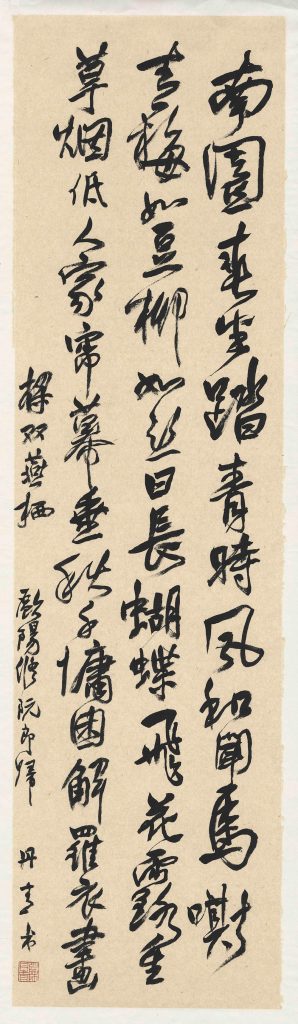 南園春半踏青時風和聞馬嘶
青梅如豆柳如丝日長蝴蝶飛花露重
草烟低人家帘幕垂秋千慵困解羅衣畫
樑双燕栖 歐陽修阮郎歸 丹青书